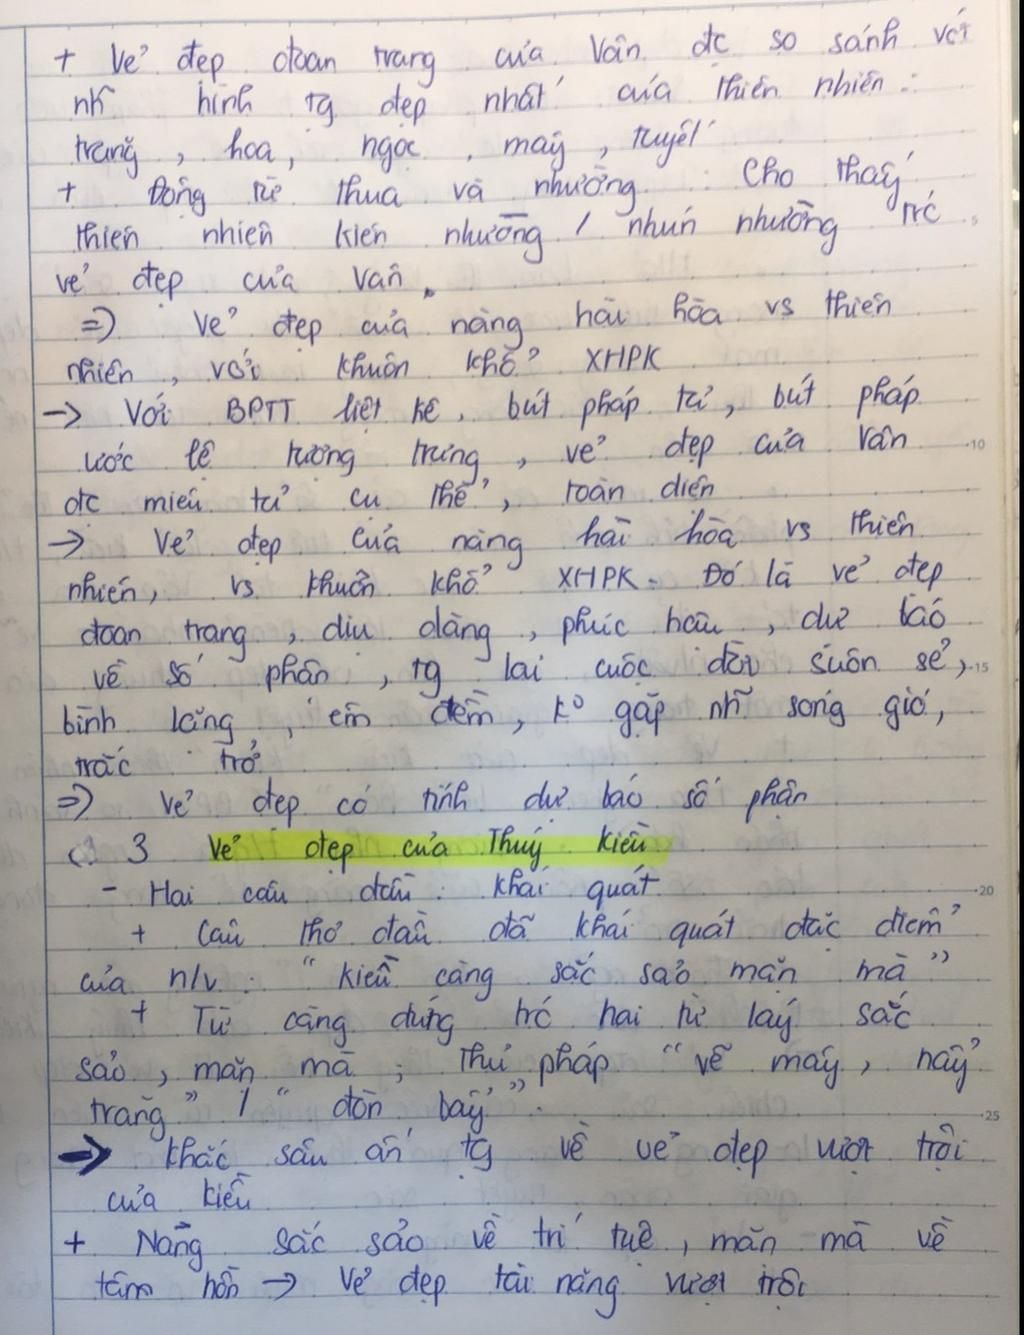 + Vẻ đẹp đoan trang của Vân đc so sánh với
nh~ hình tg đẹp nhất của thiên nhiên :
trăng , hoa , ngọc , mây , tuyết
+ Động từ thua và nhường : Cho thấy
thiên nhiên kiên nhường / nhún nhường trc
vẻ đẹp của Vân.
=> Vẻ đẹp của nàng hài hòa vs thiên
nhiên , với khuôn khổ XHPK
-> Với BPTT liệt kê , bút pháp tả , bút pháp
ước lệ tượng trưng , vẻ đẹp của Vân
10
đc miêu tả cụ thể , toàn diện
-> Vẻ đẹp của nàng hài hòa vs thiên
nhiên, vs khuôn khổ XHPK. Đó là vẻ đẹp
đoan trang , dịu dàng , phúc hậu , dự báo
về số phận , tg lai cuộc đời suôn sẻ ,
15
bình lặng , êm đềm, ko gặp nh~ sóng gió,
trắc trở
=> Vẻ đẹp có tính dự báo số phận
3 Vẻ đẹp của Thúy Kiều
- Hai câu đầu : khái quát
20
+ Câu thơ đầu đã khái quát đặc điểm
của n/v : " Kiều càng sắc sảo mặn mà "
+ Từ càng đứng trc hai từ láy sắc
sảo , mặn mà ; Thủ pháp " vẽ mây , nảy
trăng " / " đòn bẩy " .
25
-> khắc sâu ấn tg về vẻ đẹp vượt trội
của Kiều
+ Nàng sắc sảo về trí tuệ , mặn mà về
tâm hồn -> Vẻ đẹp tài năng vượt trội